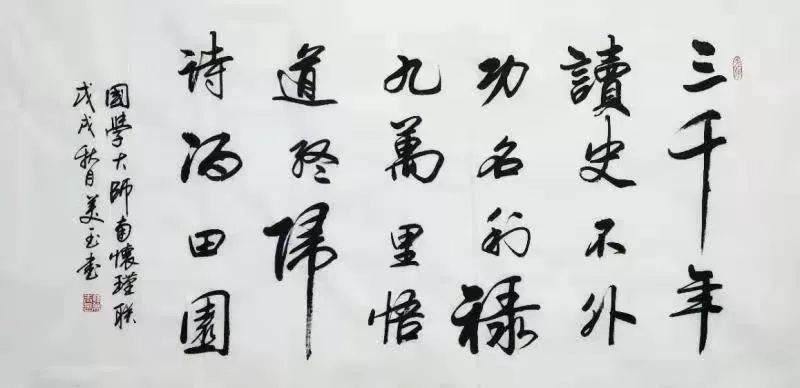 三千年
讀史不外
功名利禄
九萬里悟
道終歸
詩酒田園
國學大師南懷瑾联
戊戌秋月美玉书